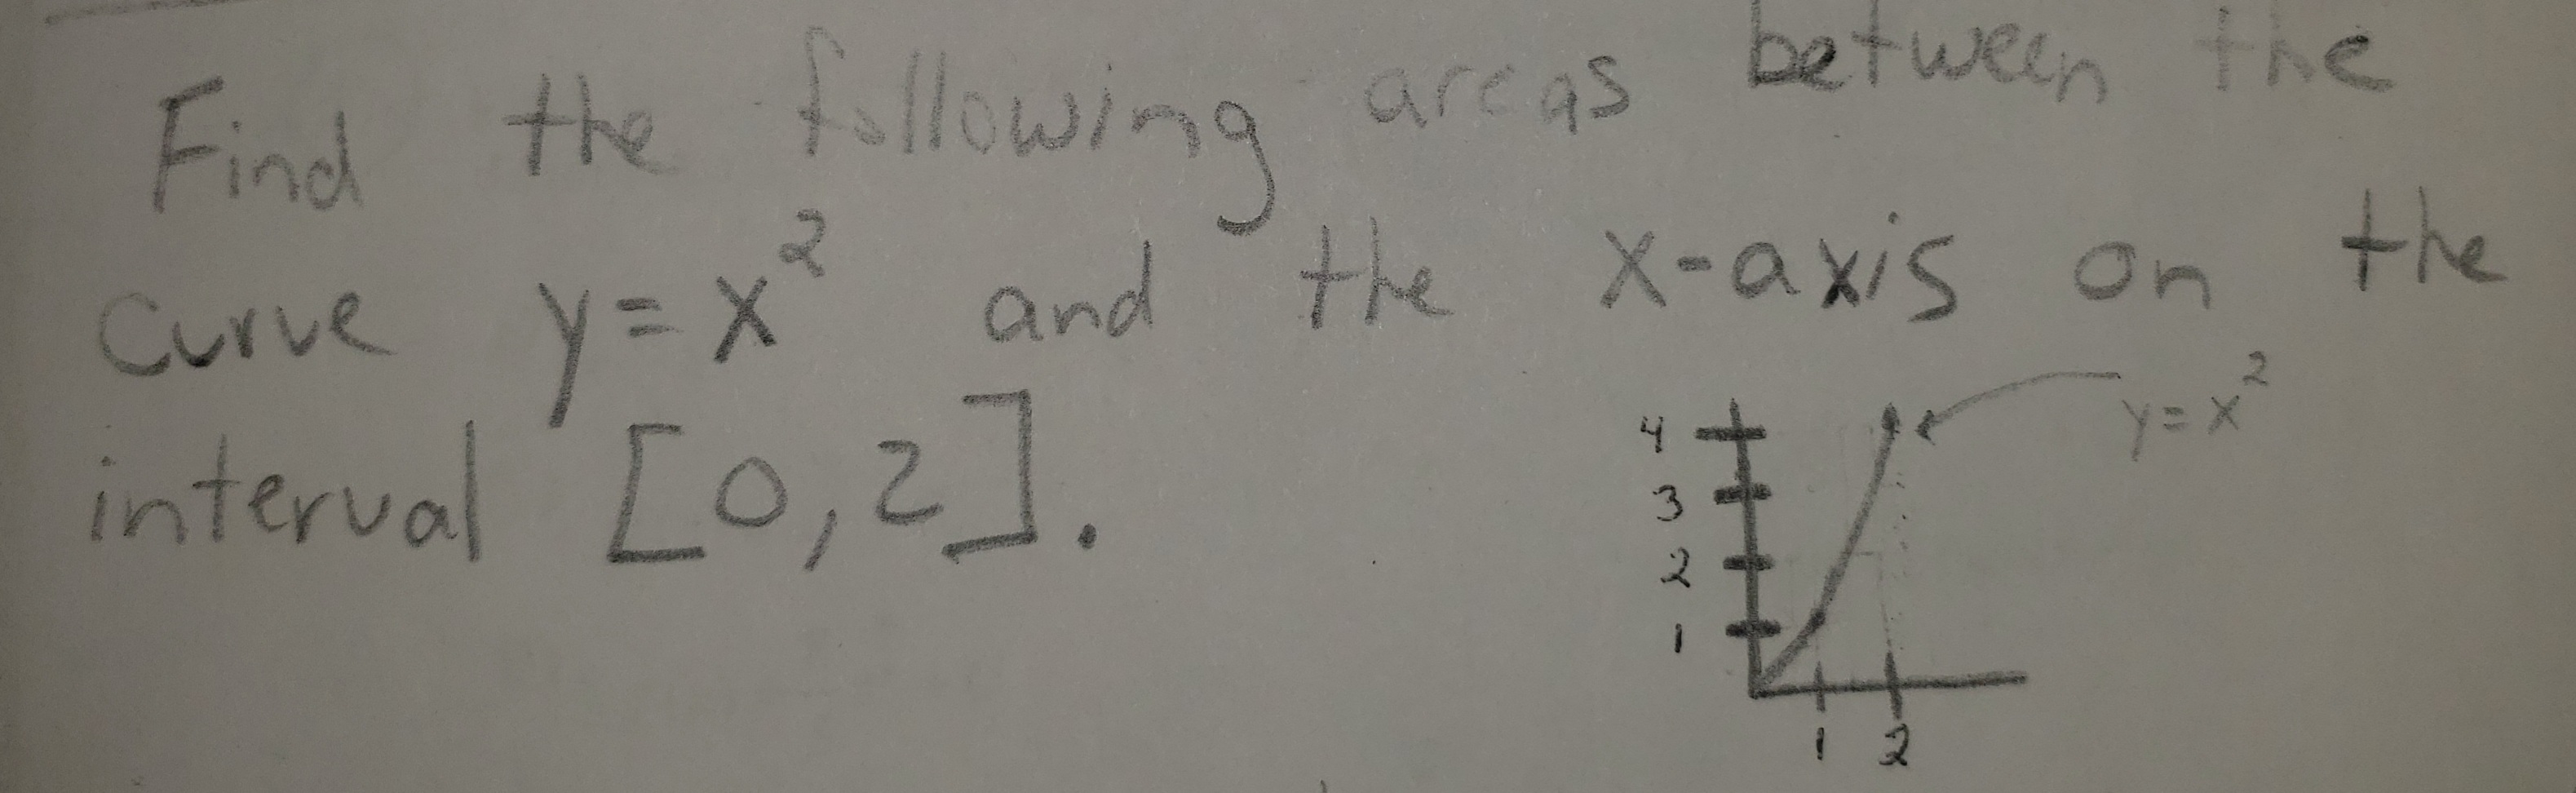 Find the following areas between the
curve y = x² and the x-axis on the
interval [0,2].
y = x²
4
3
2
1
1 2